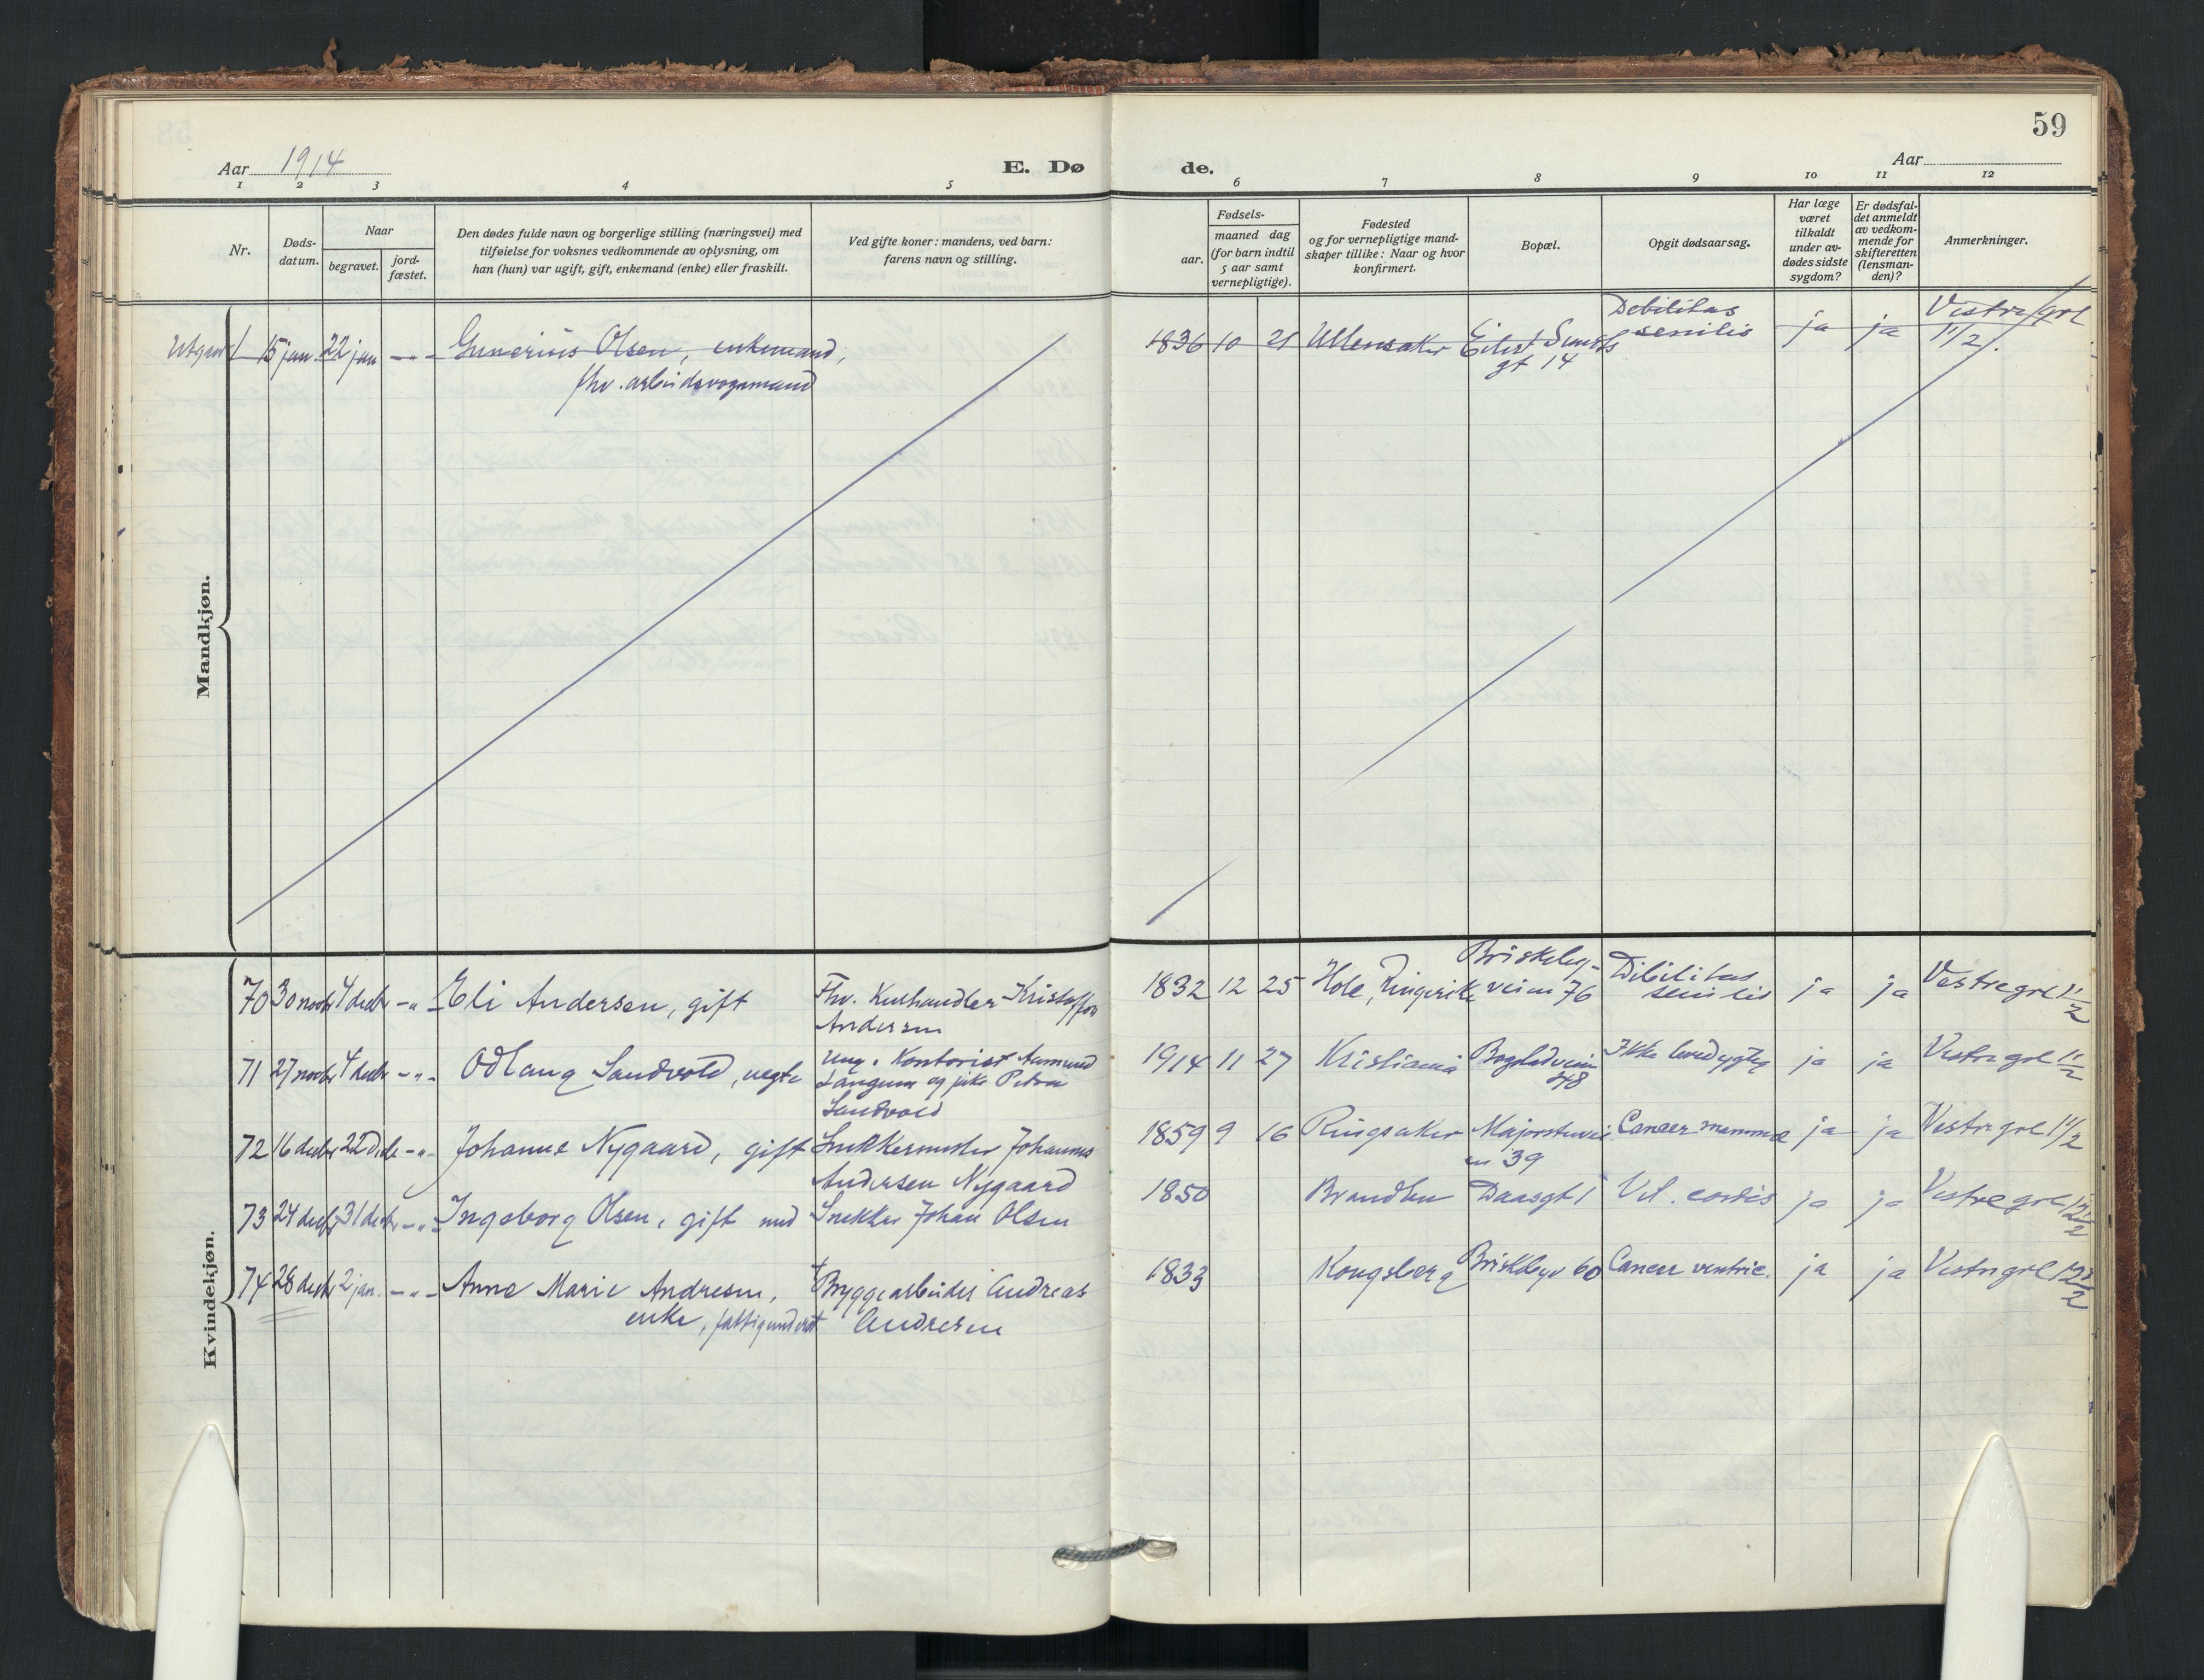 59
Aar 1914
E. Dø
de.
Aar
1 2 3 4 5 6 7 8 9 10 11 12
Nr.
Døds-
datum.
Naar
begravet.
jord-
fæstet.
Den dødes fulde navn og borgerlige stilling (næringsvei) med
tilføielse for voksnes vedkommende av oplysning, om
han (hun) var ugift, gift, enkemand (enke) eller fraskilt.
Ved gifte koner: mandens, ved barn:
farens navn og stilling.
Fødsels-
aar.
maaned dag
(for barn indtil
5 aar samt
vernepligtige).
Fødested
og for vernepligtige mand-
skaper tillike: Naar og hvor
konfirmert.
Bopæl.
Opgit dødsaarsag.
Har læge
været
tilkaldt
under av-
dødes sidste
sygdom?
Er dødsfal-
det anmeldt
av vedkom-
mende for
skifteretten
(lensman-
den)?
Anmerkninger.
Mandkjøn.
Debilitas Vestre grl
1 15 jan. 22 jan -"- Gunerius Olsen, enkemand, 1836 10 21 Ullensaker Eilert Sundts senilis ja ja 11/2.
fhv. arbeidsvognmand gt 14
Kvindekjøn.
Briskeby- Debilitas
70 30 novbr 4 decbr -"- Eli Andersen, gift Fhv. Kulhandler Kristoffer 1832 12 25 Hole, Ringerike veien 76 senilis ja ja Vestre grl 11/2
Andersen
71 27 novbr 4 decbr -"- Odlaug Sandvold, uegte Ung. Kontorist Aamund 1914 11 27 Kristiania Bogstadveien Ikke levedygtig ja ja Vestre grl 11/2
Langum og pike Petra 48
Sandvold
72 16 decbr 22 Dcbr -"- Johanne Nygaard, gift Snekkermester Johannes 1859 9 16 Ringsaker Majorstuvei Cancer mammae ja ja Vestre grl 11/2
Andersen Nygaard en 39
73 24 decbr 31 decbr -"- Ingeborg Olsen, gift med Snekker Johan Olsen 1850 Brandbu Daasgt 1 Vit. cordis ja ja Vestre grl
74 28 decbr 2 jan. -"- Anne Marie Andresen, Bryggearbeider Andreas 1833 Kongsberg Briskebyv 60 Cancer ventric. ja ja Vestre grl
enke, fattigunderst. Andresen